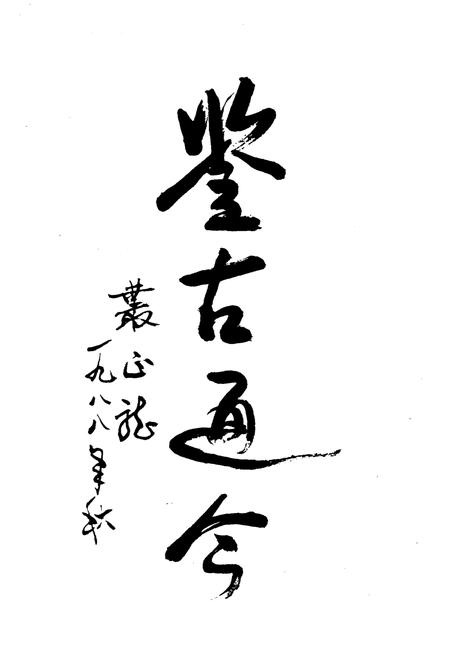 鉴古通今
叢正龙
一九八八年秋